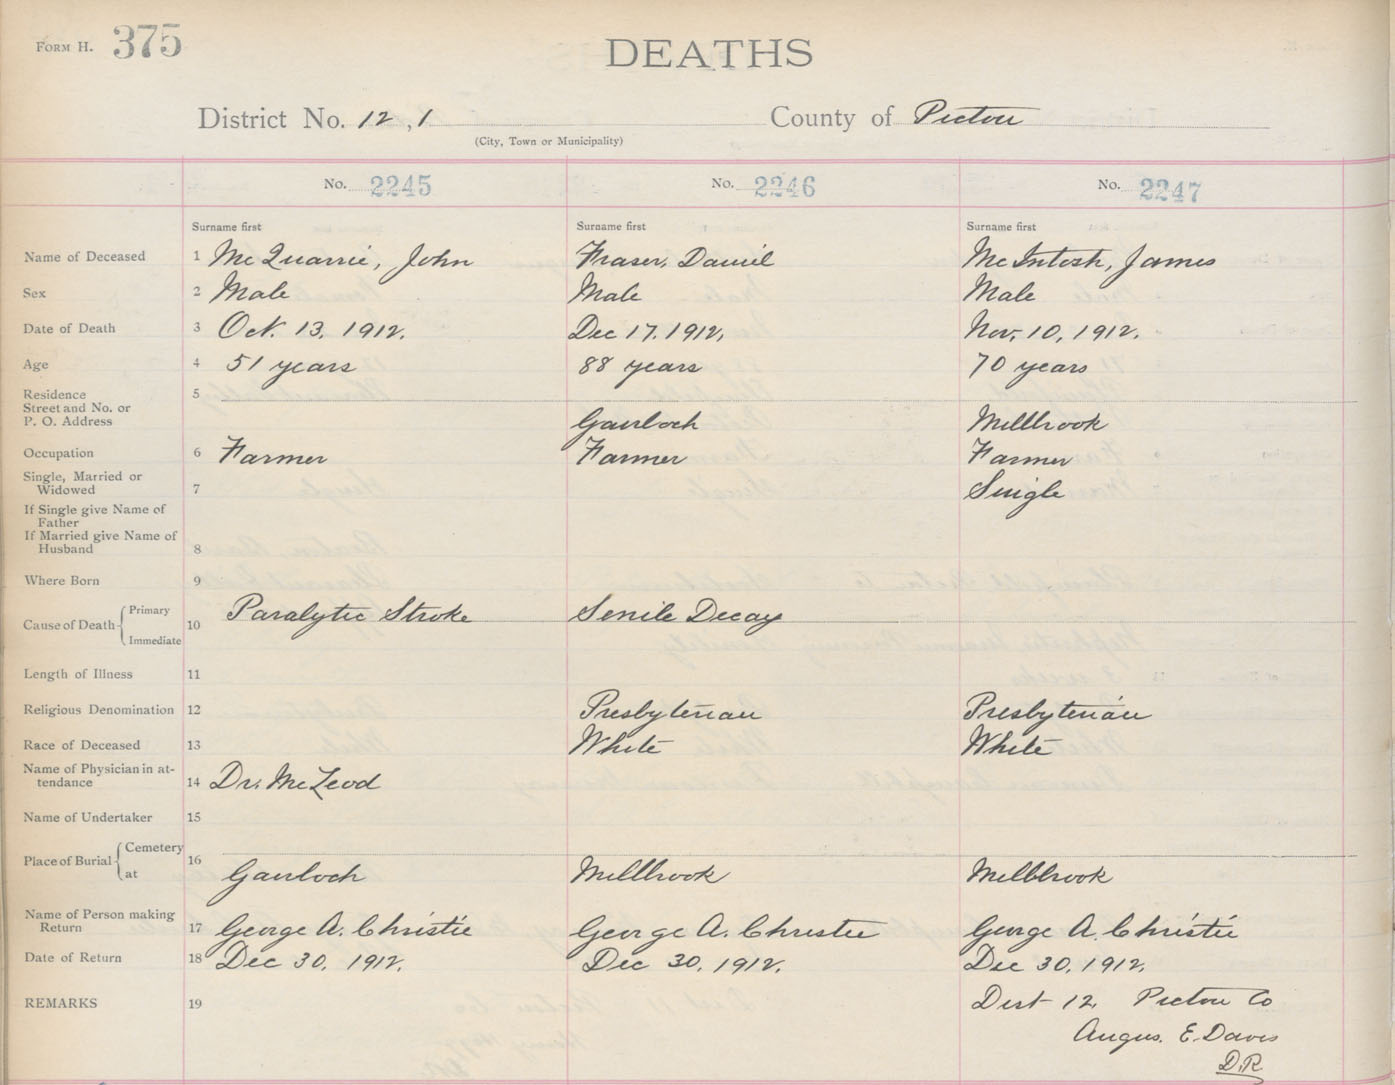 FORM H. 375
DEATHS
District No. 12,1 County of Pictou
(City, Town or Municipality)
No. 2245 No. 2246 No. 2247
Surname first Surname first Surname first
Name of Deceased 1 McQuarrie, John Fraser, Daniel McIntosh, James
Sex 2 Male Male Male
Date of Death 3 Oct. 13. 1912. Dec 17. 1912. Nov. 10, 1912.
Age 4 51 years 88 years 70 years
Residence 5
Street and No. or
P. O. Address Gairloch Millbrook
Occupation 6 Farmer Farmer Farmer
Single, Married or
Widowed 7 Single
If Single give Name of
Father
If Married give Name of
Husband 8
Where Born 9
Cause of Death Primary
Immediate 10 Paralytic Stroke Senile Decay
Length of Illness 11
Religious Denomination 12 Presbyterian Presbyterian
Race of Deceased 13 White White
Name of Physician in at-
tendance 14 Dr. McLeod
Name of Undertaker 15
Place of Burial Cemetery 16
at Gairloch Millbrook Millbrook
Name of Person making
Return 17 George A. Christie George A. Christie George A. Christie
Date of Return 18 Dec 30. 1912. Dec 30. 1912. Dec 30, 1912.
REMARKS 19 Dist 12, Pictou Co
Angus. E. Davis
D.R